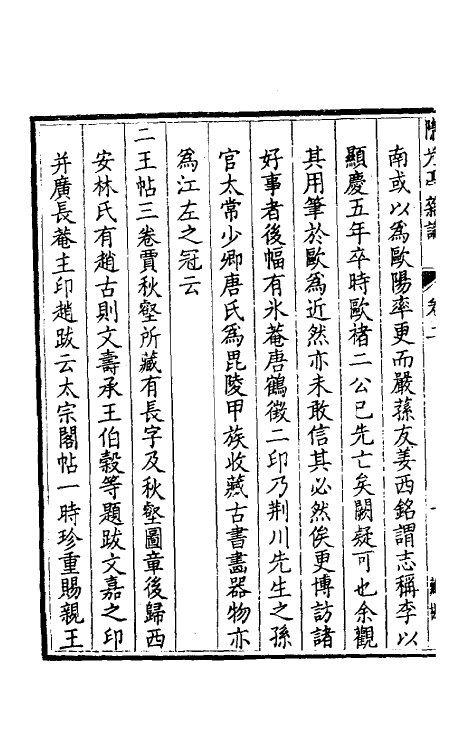 南或以為歐陽率更而嚴蓀友姜西銘謂志稱李以
顯慶五年卒時歐褚二公已先亡矣闕疑可也余觀
其用筆於歐為近然亦未敢信其必然俟更博訪諸
好事者後幅有氷菴唐鶴徵二印乃荆川先生之孫
官太常少卿唐氏為毘陵甲族收藏古書畵器物亦
為江左之冠云
二王帖三卷賈秋壑所藏有長字及秋壑圖章後歸西
安林氏有趙古則文壽承王伯榖等題跋文嘉之印
并廣長菴主印趙跋云太宗閣帖一時珍重賜親王